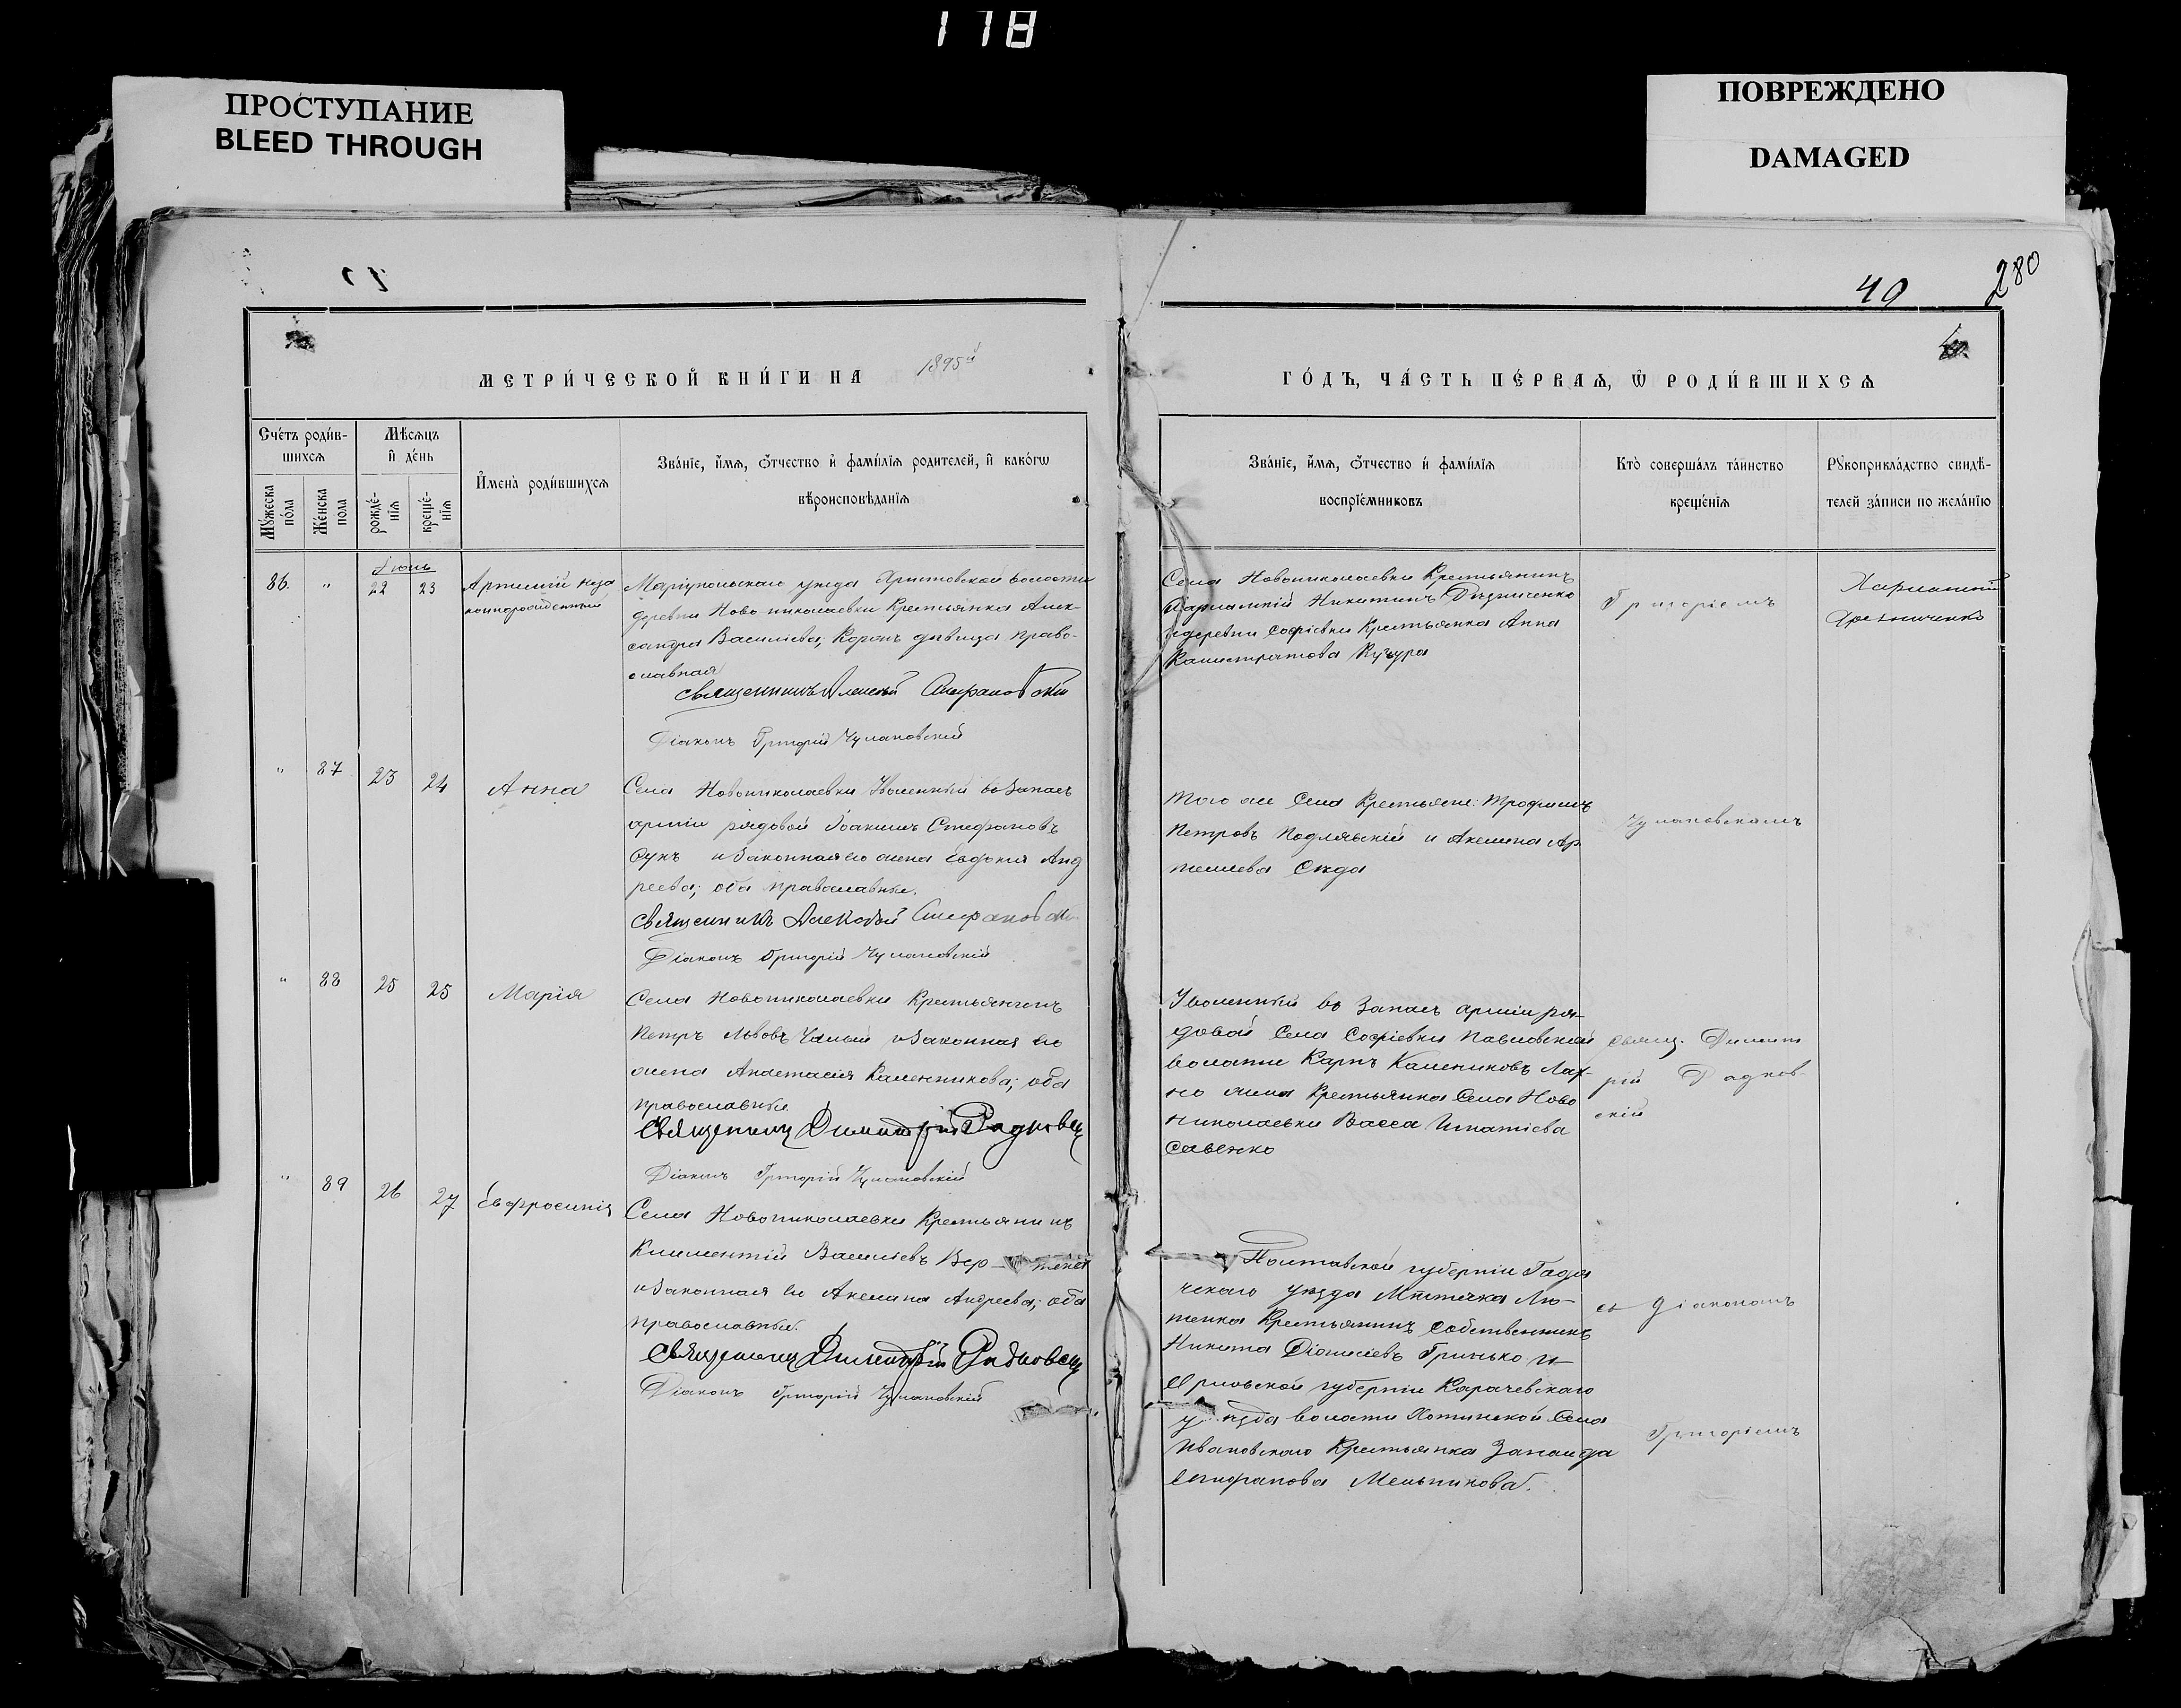 118
ПРОСТУПАНИЕ
BLEED THROUGH
ПОВРЕЖДЕНО
DAMAGED
280
40
МЕТРИ́ЧЕСКОЙ КНИ́ГИ НА 1895й
ГО́ДЪ, ЧА́СТЬ ПЕ́РВАѦ, Ѡ҆ РОДИ́ВШИХСѦ
Сче́тъ роди́в-
шихсѧ
Мꙋ́жеска
по́ла
Же́нска
пола
Мѣ́сѧцъ
и҆ де́нь
рожде́-
нїѧ
креще́-
нїѧ
И҆мена̀ роди́вшихсѧ
Зва́нїе, и҆́мѧ, ѻ҆́тчество и҆ фамѝлїѧ родителей, и҆ како́гѡ
вѣроисповѣданїѧ
Зва́нїе, и҆́мѧ, ѻ҆́тчество и҆ фамѝлїѧ
воспрїе́мниковъ
Кто̀ соверша́лъ та́инство
креще́нїѧ
Рꙋкоприкла́дство свидѣ́-
телей за́писи по жела́нїю
Іюнь
86. " 22 23 Артемій неза
коннорожденный
Маріупольскаго уѣзда Христовской волости
деревни Ново николаевки Крестьянка Алек-
сандра Василіева, дѣвица право-
славная
Священникъ Алексѣй
Діаконъ Григорій Чулановскій
Села Новониколаевки Крестьянинъ
Харлампій Никитинъ
и деревни Софіевки Крестьянка Анна
Калистратова
Григоріемъ
Харлампій
" 87 23 24 Анна
Села Новониколаевки Уволенный въ запасъ
арміи рядовой Іоакимъ Стефановъ
и законная его жена Евдокія Анд
реева; оба православные.
Священникъ Алексѣй
Діаконъ Григорій Чулановскій
Того же Села Крестьяне: Трофимъ
Петровъ и Акелина Ар
темиева
Чулановскимъ
" 88 25 25 Марія
Села Новониколаевки Крестьянинъ
Петръ Львовъ и законная его
жена Анастасія Каленникова; оба
православные
Священникъ Димитрій
Діаконъ Григорій Чулановскій
Уволенный въ запасъ арміи ря-
довой Села Софіевки Павловской
волости Карпъ Калениковъ
и Крестьянка Села Ново
николаевки Васса Игнатіева
Савенко
свящ. Димит
рій
скій
" 89 26 27 Евфросинія
Села Новониколаевки Крестьянинъ
Климентій Василіевъ
и законная его Акелина Андреева; оба
православные.
Священникъ Димитрій
Діаконъ Григорій Чулановскій
Полтавской губерніи Гадя
ческаго уѣзда Мѣстечка Лю-
тенка Крестьянинъ собственникъ
Никита Діонисіевъ Гринько и
Орловской губерніи Карачевскаго
уѣзда волости Села
Ивановскаго Крестьянка Зинаида
Епифанова Мельникова.
съ діакономъ
Григоріемъ